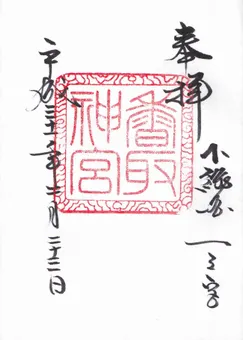 奉拝
下総国 一之宮
香取
神宮
平成二十二年二月二十二日